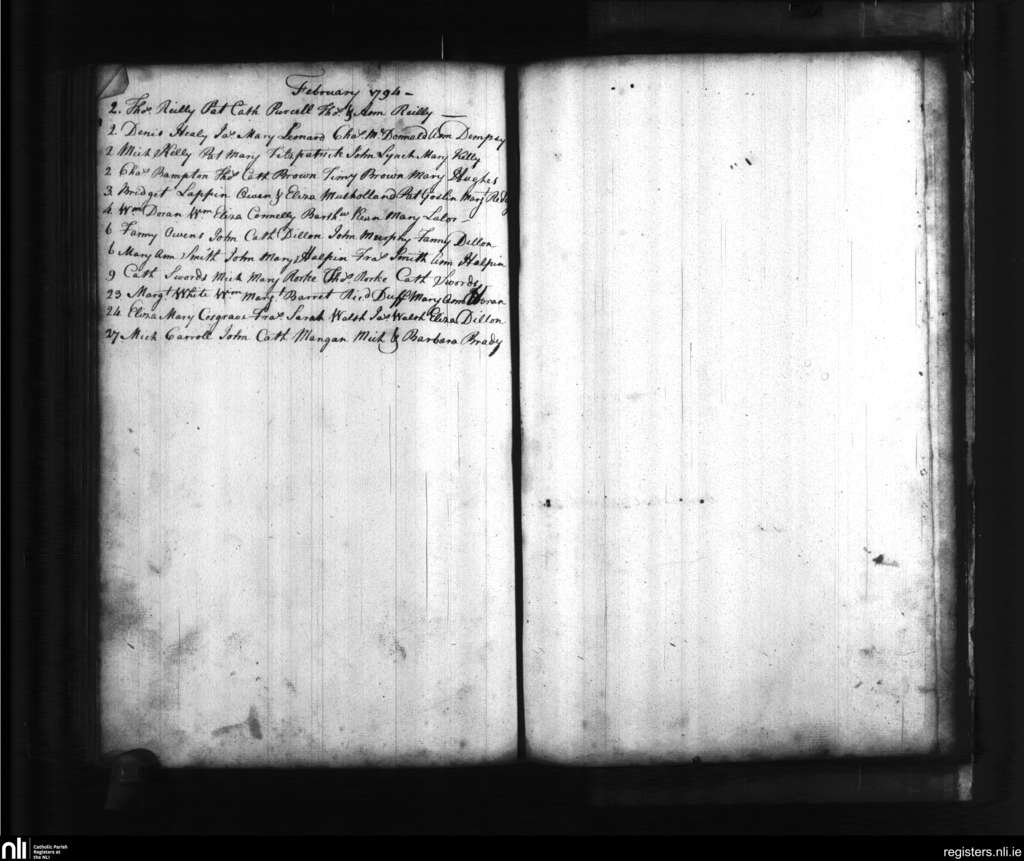 February 1794 -
2. Thos Reilly Pat Cath Purcell Thos & Ann Reilly —
2 Denis Healy Jas Mary Leonard Chas McDonnald Ann Dempsey
2 Mich Kelly Pat Mary Fitzpatrick John Lynch Mary Kelly
2 Chas Bampton Thos Cath Brown Timy Brown Mary Hughes
3. Bridget Lappin Owen & Eliza Mulholland Pat Goslin Margt
4. Wm Doran Wm Eliza Connelly Barthw Kean Mary Lalor -
6 Fanny Owens John Cath Dillon John Murphy Fanny Dillon
6 Mary Ann Smith John Mary Halpin Fras Smith Ann Halpin
9 Cath Swords Mich Mary Rorke Thos Rorke Cath Swords
23 Margt White Wm Margt Barret Ricd Duff Mary Ann Horan
24 Eliza Mary Cosgrave Fras Sarah Walsh Jas Walsh Eliza Dillon
27 Mich Carroll John Cath Mangan Mich & Barbara Brady
nli Catholic Parish
Registers at
the NLI
registers.nli.ie